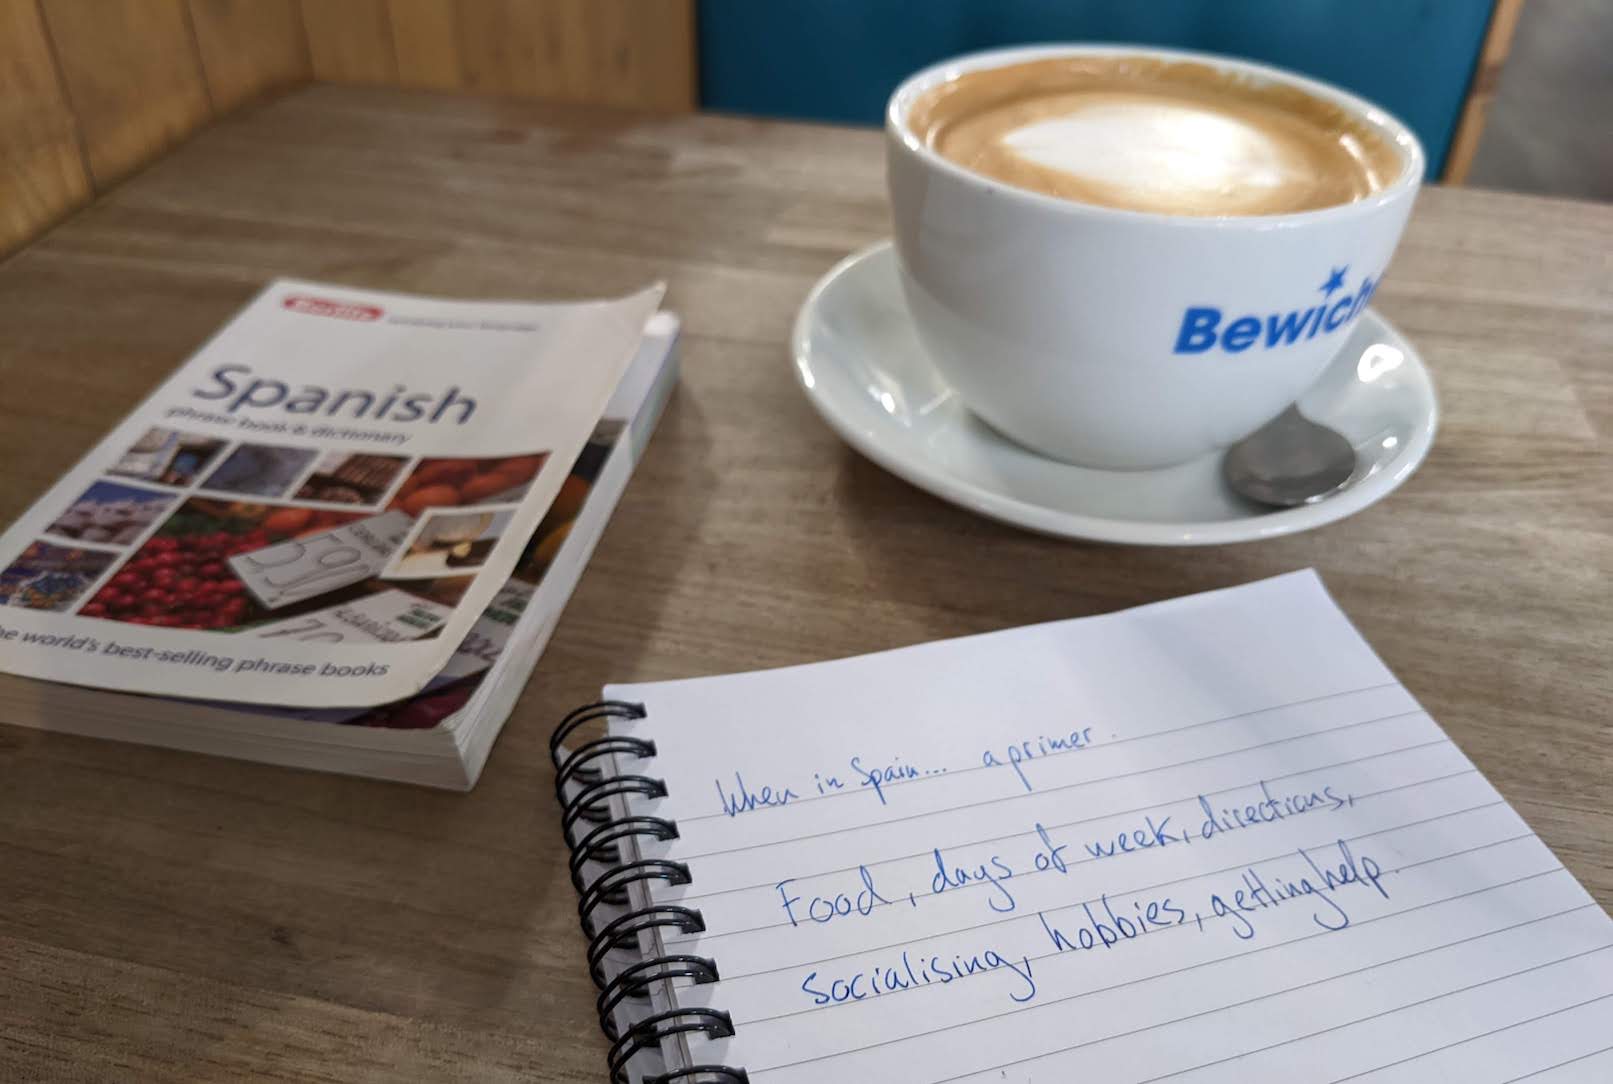 Berlitz
Spanish
phrase book & dictionary
59
he world's best-selling phrase books
Bewich
When in Spain... a primer.
Food, days of week, directions,
socialising, hobbies, getting help.